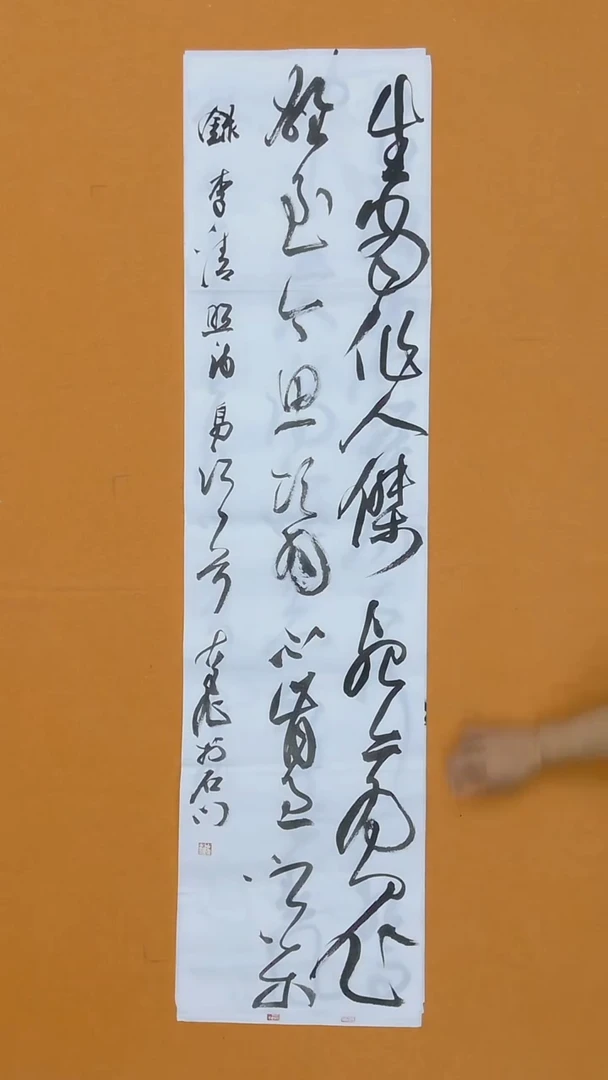 生當作人傑死亦為鬼
雄至今思項羽不肯過江東
錄李清照烏江於石门